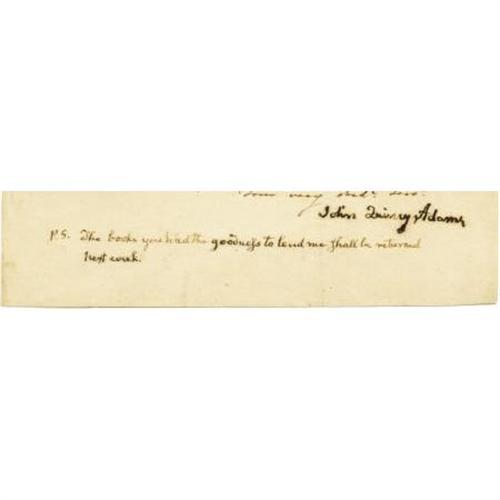 your very hble. serv.
John Quincy Adams
P.S. The books you had the goodness to lend me shall be returned
next week.